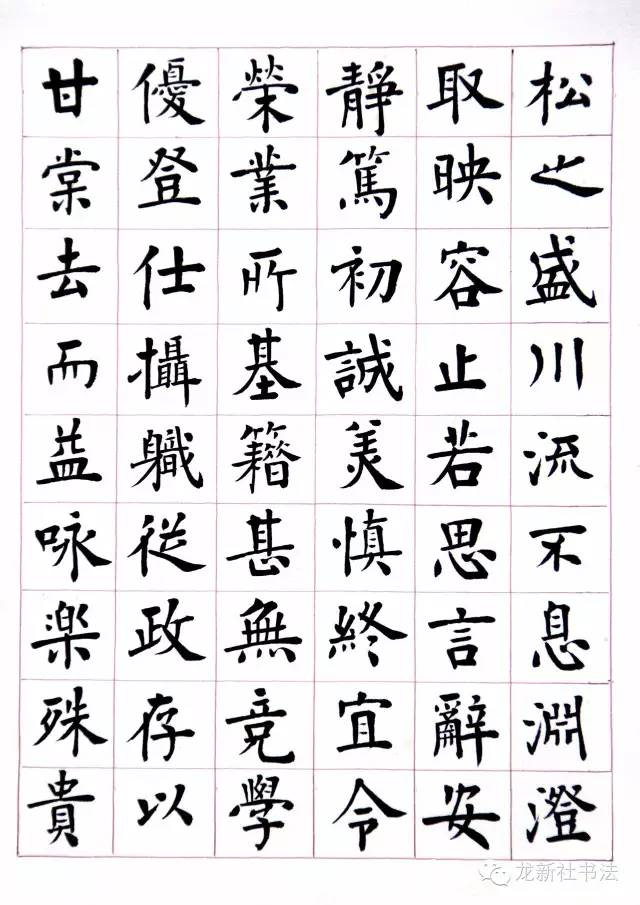 松之盛川流不息淵澄
取映容止若思言辭安
靜篤初誠美慎終宜令
榮業所基籍甚無竟學
優登仕攝職從政存以
甘棠去而益咏楽殊貴
龙新社书法